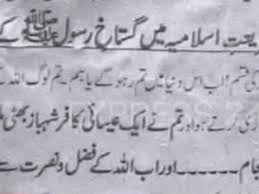 یعت اسلامیہ میں گستاخ رسول ﷺ کے
کی قسم اب اس دنیا میں تم رہو گے یا ہم۔ تم لوگ اللہ کے
ری کرتے ہو اور تم نے ایک عیسائی کافر شہباز بھٹی
جام ۔۔۔۔۔۔ اور اب اللہ کے فضل و نصرت سے